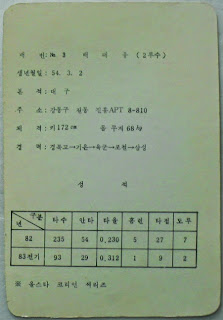 No. 3 배 대 웅 (2루수)
생년월일 : 54. 3. 2
본 적 : 대 구
주 소 : 강동구 APT 8-810
체 격 : 키172cm 몸 무게 68kg
경 력 : 경북고→기은→육군→포철→삼성
성 적
년 구분 타수 안타 타율 홈런 타점 도루
82 235 54 0.230 5 27 7
83전기 93 29 0.312 1 9 2
※ 올스타 코리언 씨리즈